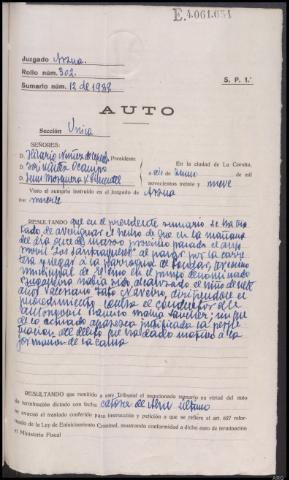 E.4.061.651
Juzgado Arzua.
Rollo núm. 302.
Sumario núm. 12 de 1938
S. P. 1.ª
AUTO
Sección Unica
SEÑORES:
D. Hilario Núñez de Presidente
D. José
D. Luis Mosquera
En la ciudad de La Coruña,
a de Junio de mil
novecientos treinta y nueve
Visto el sumario instruído en el Juzgado de Arzua
por muerte
RESULTANDO que en el precedente sumario se ha tra-
tado de averiguar el hecho de que en la mañana
del dia de marzo próximo pasado el auto-
movil al pasar por la carre-
tera a la parroquia de termino
municipal de en el punto denominado
habia sido alcanzado el niño de siete
años Valeriano Pato Naveiro, dirigiendose el
procedimiento contra el conductor del
automovil Ramiro sin que
de lo actuado aparezca justificada la perpe-
tración del delito que ha dado motivo a la
formación de la causa
RESULTANDO que remitido a este Tribunal el mencionado sumario en virtud del auto
de terminación dictado con fecha catorce de Abril ultimo
se evacuó el traslado conferido para instrucción y petición a que se refiere el art. 627 refor-
mado de la Ley de Enjuiciamiento Criminal, mostrando conformidad a dicho auto de terminación
el Ministerio Fiscal